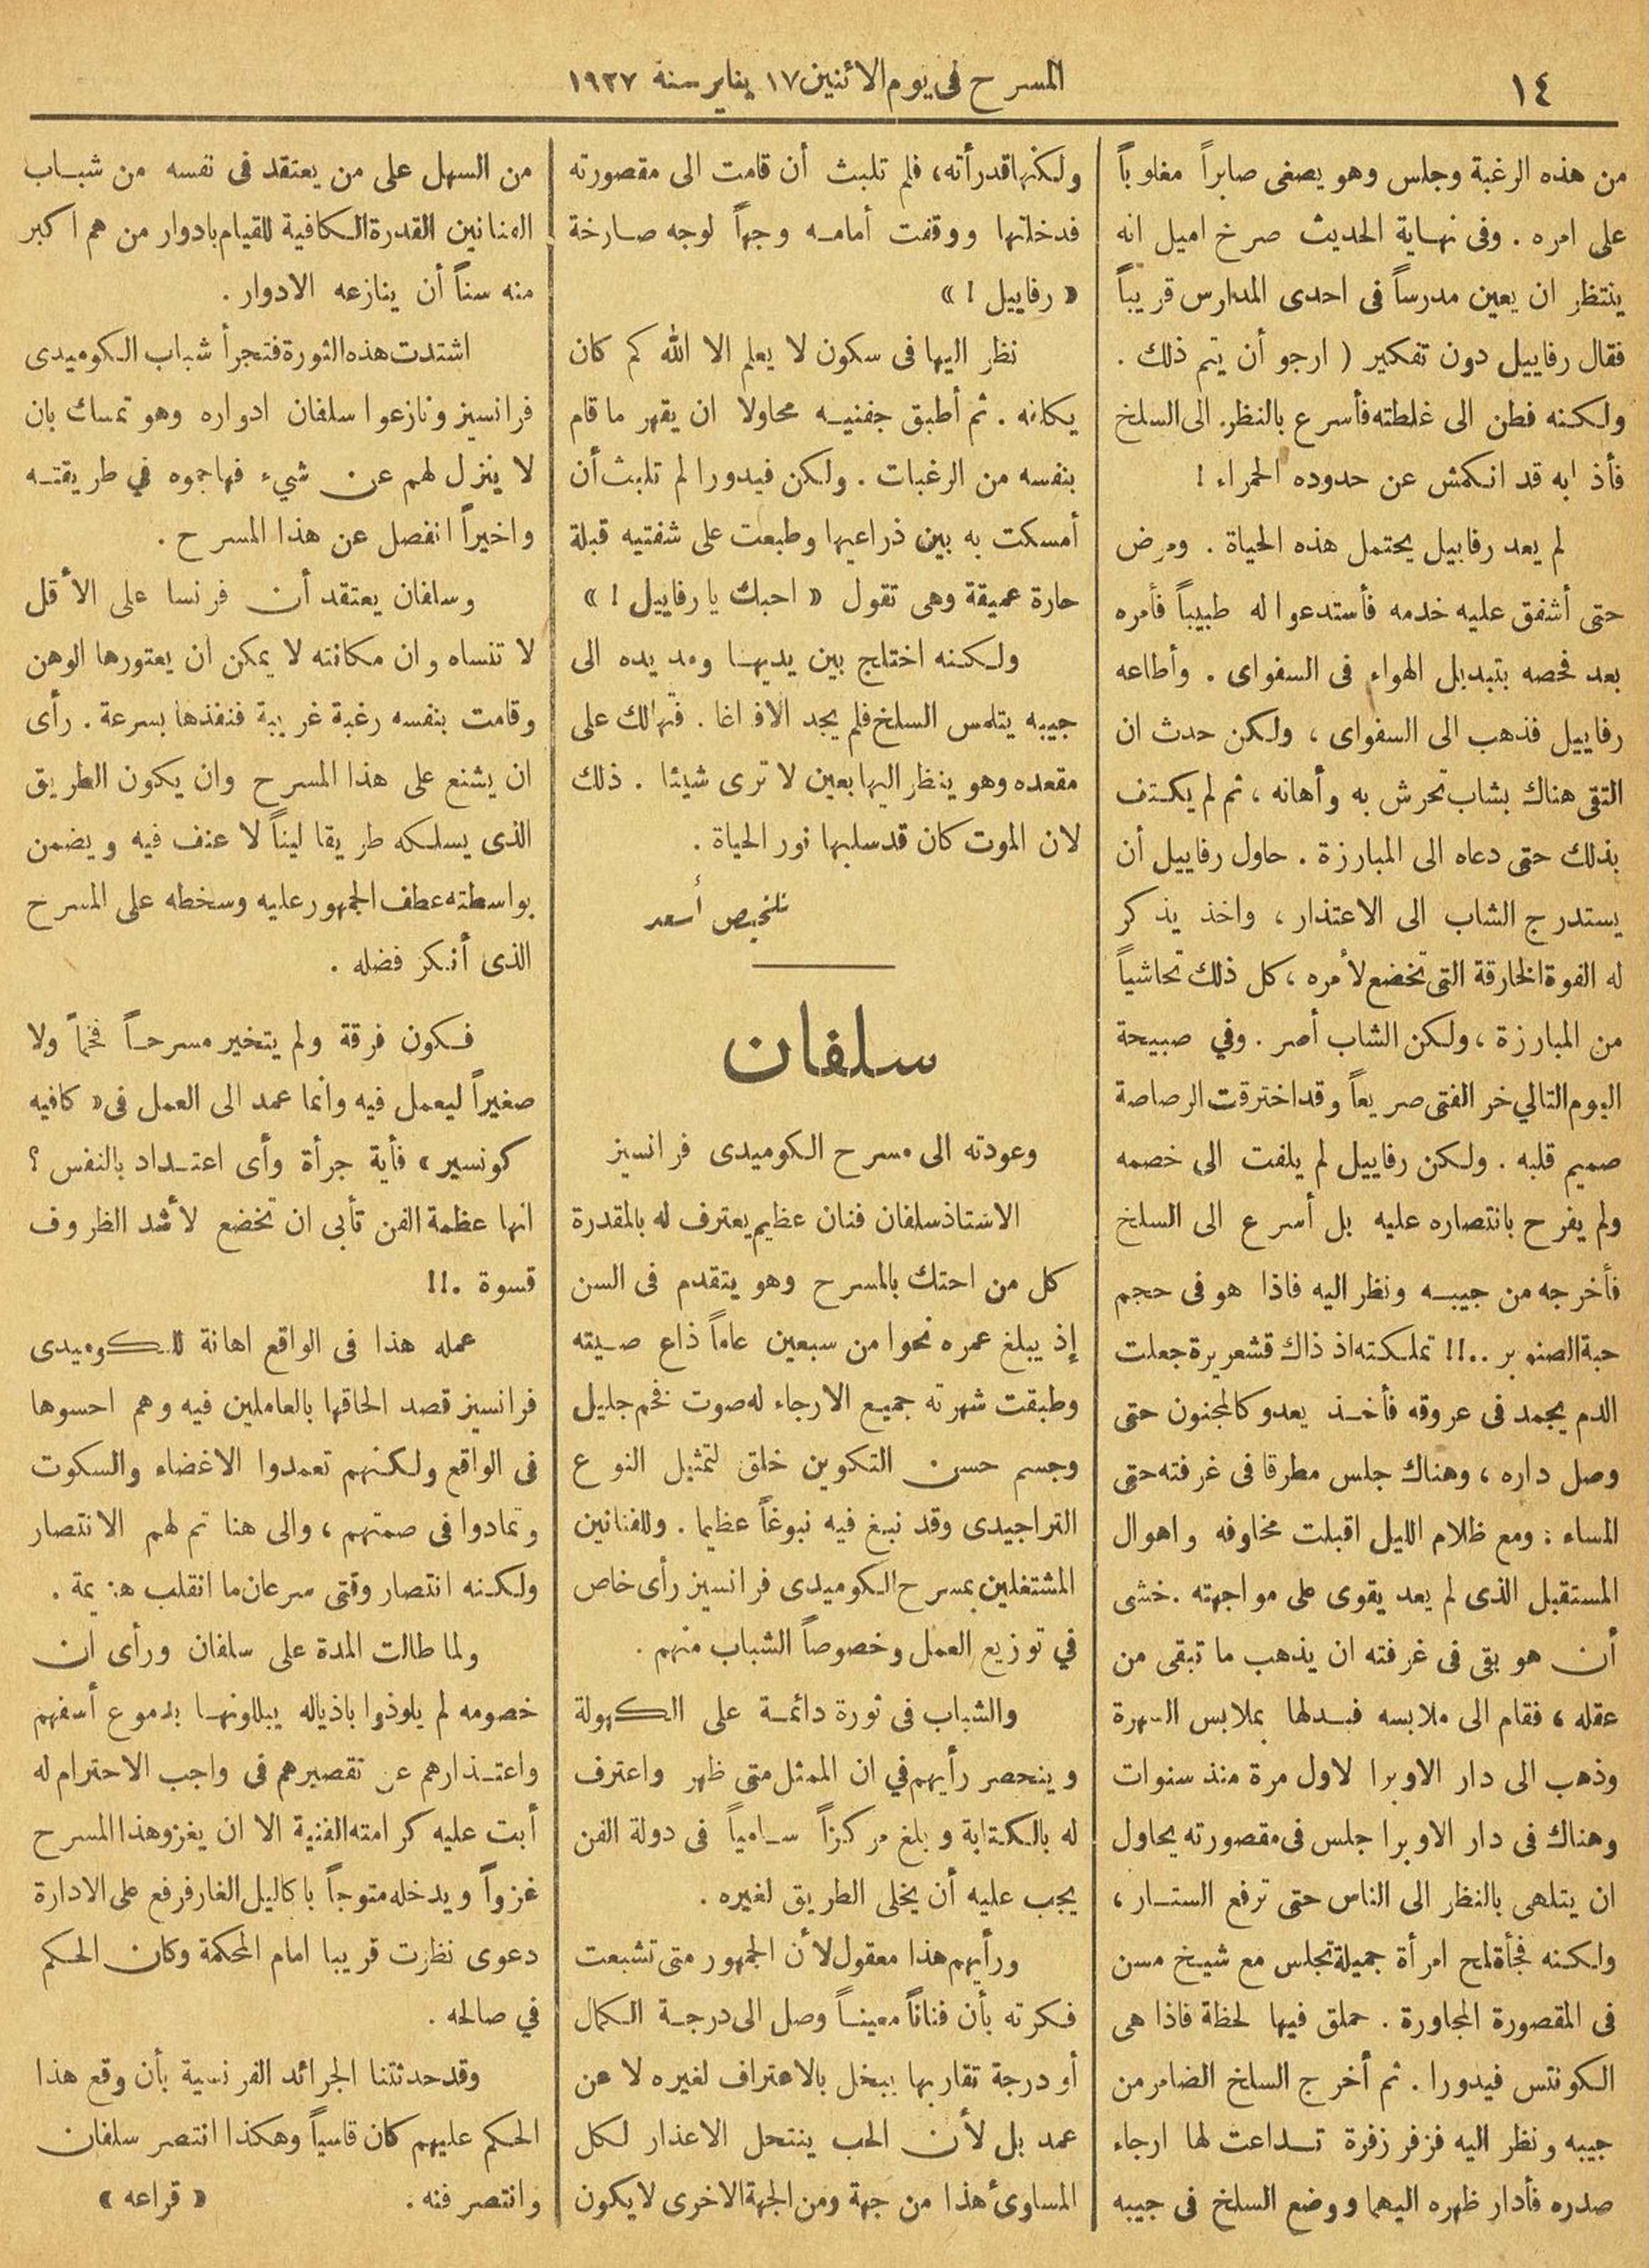 ١٤
المسرح فى يوم الاثنين ١٧ يناير سنة ١٩٢٧
من هذه الرغبة وجلس وهو يصغى صابراً مغلوباً
على امره . وفى نهاية الحديث صرخ اميل انه
ينتظر ان يعين مدرساً فى احدى المدارس قريباً
فقال رفاييل دون تفكير ( ارجو أن يتم ذلك .
ولكنه فطن الى غلطته فأسرع بالنظر . الى السلخ
فأذا به قد انكمش عن حدوده الحمراء !
لم يعد رفاييل يحتمل هذه الحياة . ومرض
حتى أشفق عليه خدمه فأستدعوا له طبيباً فأمره
بعد فحصه بتبديل الهواء فى السفواى . وأطاعه
رفاييل فذهب الى السفواى ، ولكن حدث ان
التقى هناك بشاب تحرش به وأهانه ، ثم لم يكتف
بذلك حتى دعاه الى المبارزة . حاول رفاييل أن
يستدرج الشاب الى الاعتذار ، واخذ يذكر
له القوة الخارقة التى تخضع لأمره ، كل ذلك تحاشياً
من المبارزة ، ولكن الشاب أصر . وفي صبيحة
اليوم التالي خر الفتى صريعاً وقد اخترقت الرصاصة
صميم قلبه . ولكن رفاييل لم يلفت الى خصمه
ولم يفرح بانتصاره عليه بل أسرع الى السلخ
فأخرجه من جيبه ونظر اليه فاذا هو فى حجم
حبة الصنوبر ..!! تملكته اذ ذاك قشعريرة جعلت
الدم يجمد فى عروقه فأخذ يعدو كالمجنون حتى
وصل داره ، وهناك جلس مطرقا فى غرفته حتى
المساء : ومع ظلام الليل اقبلت مخاوفه واهوال
المستقبل الذى لم يعد يقوى على مواجهته . خشى
أن هو بقى فى غرفته ان يذهب ما تبقى من
عقله ، فقام الى ملابسه فبدلها بملابس السهرة
وذهب الى دار الاوبرا لاول مرة منذ سنوات
وهناك فى دار الاوبرا جلس فى مقصورته يحاول
ان يتلهى بالنظر الى الناس حتى ترفع الستار ،
ولكنه فجأة لمح امرأة جميلة تجلس مع شيخ مسن
فى المقصورة المجاورة . حملق فيها لحظة فاذا هى
الكونتس فيدورا . ثم أخرج السلخ الضامر من
جيبه ونظر اليه فزفر زفرة تداعت لها ارجاء
صدره فأدار ظهره اليهما ووضع السلخ فى جيبه
ولكنها قد رأته ، فلم تلبث أن قامت الى مقصورته
فدخلتها ووقفت أمامه وجهاً لوجه صارخة
« رفاييل ! »
نظر اليها فى سكون لا يعلم الا الله كم كان
يكلفه . ثم أطبق جفنيه محاولا ان يقهر ما قام
بنفسه من الرغبات . ولكن فيدورا لم تلبث أن
أمسكت به بين ذراعيها وطبعت على شفتيه قبلة
حارة عميقة وهى تقول « احبك يا رفاييل ! »
ولكنه اختلج بين يديها ومد يده الى
جيبه يتلمس السلخ فلم يجد الا فراغا . فتهالك على
مقعده وهو ينظر اليها بعين لا ترى شيئا . ذلك
لان الموت كان قد سلبها نور الحياة .
تلخيص أسعد
سلفان
وعودته الى مسرح الكوميدى فرانسيز
الاستاذ سلفان فنان عظيم يعترف له بالمقدرة
كل من احتك بالمسرح وهو يتقدم فى السن
إذ يبلغ عمره نحوا من سبعين عاماً ذاع صيته
وطبقت شهرته جميع الارجاء له صوت فخم جليل
وجسم حسن التكوين خلق لتمثيل النوع
التراجيدى وقد نبغ فيه نبوغاً عظيما . وللفنانين
المشتغلين بمسرح الكوميدى فرانسيز رأى خاص
في توزيع العمل وخصوصاً الشباب منهم .
والشباب فى ثورة دائمة على الكهولة
وينحصر رأيهم في ان الممثل متى ظهر واعترف
له بالكتابة وبلغ مركزاً سامياً فى دولة الفن
يجب عليه أن يخلى الطريق لغيره .
ورأيهم هذا معقول لأن الجمهور متى تشبعت
فكرته بأن فناناً معيناً وصل الى درجة الكمال
أو درجة تقاربها يبخل بالاعتراف لغيره لا عن
عمد بل لأن الحب ينتحل الاعذار لكل
المساوئ هذا من جهة ومن الجهة الاخرى لا يكون
من السهل على من يعتقد فى نفسه من شباب
الفنانين القدرة الكافية للقيام بادوار من هم اكبر
منه سناً أن ينازعه الادوار .
اشتدت هذه الثورة فتجرأ شباب الكوميدى
فرانسيز ونازعوا سلفان ادواره وهو تمسك بان
لا ينزل لهم عن شيء فهاجموه في طريقته
واخيراً انفصل عن هذا المسرح .
وسلفان يعتقد أن فرنسا على الأقل
لا تنساه وان مكانته لا يمكن ان يعتورها الوهن
وقامت بنفسه رغبة غريبة فنفذها بسرعة . رأى
ان يشنع على هذا المسرح وان يكون الطريق
الذى يسلكه طريقا ليناً لا عنف فيه ويضمن
بواسطته عطف الجمهور عليه وسخطه على المسرح
الذى أنكر فضله .
فكون فرقة ولم يتخير مسرحاً فخماً ولا
صغيراً ليعمل فيه وانما عمد الى العمل فى « كافيه
كونسير » فأية جرأة وأى اعتداد بالنفس ؟
انها عظمة الفن تأبى ان تخضع لأشد الظروف
قسوة .!!
عمله هذا فى الواقع اهانة للكوميدى
فرانسيز قصد الحاقها بالعاملين فيه وهم احسوها
فى الواقع ولكنهم تعمدوا الاغضاء والسكوت
وتمادوا فى صمتهم ، والى هنا تم لهم الانتصار
ولكنه انتصار وقتى سرعان ما انقلب هزيمة .
ولما طالت المدة على سلفان ورأى ان
خصومه لم يلوذوا باذياله يبللونها بدموع أسفهم
واعتذارهم عن تقصيرهم فى واجب الاحترام له
أبت عليه كرامته الفنية الا ان يغزو هذا المسرح
غزواً ويدخله متوجاً باكاليل الغار فرفع على الادارة
دعوى نظرت قريبا امام المحكمة وكان الحكم
في صالحه .
وقد حدثتنا الجرائد الفرنسية بأن وقع هذا
الحكم عليهم كان قاسياً وهكذا انتصر سلفان
وانتصر فنه . « قراعه »